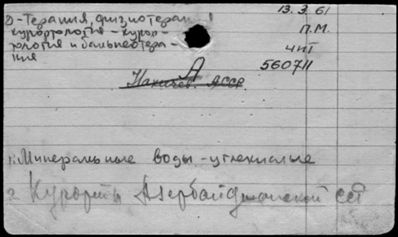 2)-Терапия, физиотерап 13.3.61
курортология - курор- П.М.
тология и бальнеотера-
пия чит
А 560711
Нахичев. АССР
1. Минеральные воды - углекислые
2. Курорты Азербайджанской ССР